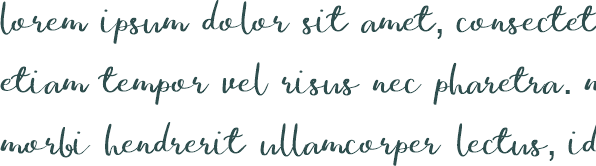 lorem ipsum dolor sit amet, consectet
etiam tempor vel risus nec pharetra. m
morbi hendrerit ullamcorper lectus, id